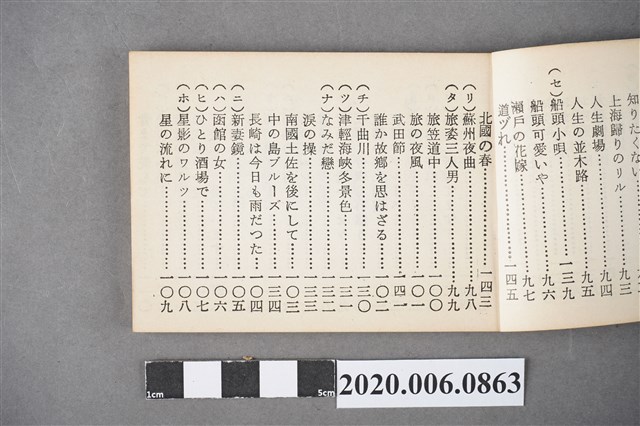 知りたくない
上海帰りのリル
人生劇場……九四
人生の並木路……九五
(セ)船頭小唄……一三九
船頭可愛いや……九六
瀬戸の花嫁……九七
道づれ……一四五
北國の春……一四三
(リ)蘇州夜曲……九八
(タ)旅姿三人男……九九
旅笠道中……一〇〇
旅の夜風……一〇一
武田節……一四一
誰か故郷を思はざる……一〇二
(チ)千曲川……一三〇
(ツ)津軽海峡冬景色……一三一
(ナ)なみだ戀……一三二
涙の操……一三三
南國土佐を後にして……一〇三
中の島ブルーズ……一三四
長崎は今日も雨だった……一〇四
(ニ)新妻鏡……一〇五
(ハ)函館の女……一〇六
(ヒ)ひとり酒場で……一〇七
(ホ)星影のワルツ……一〇八
星の流れに……一〇九
1cm
5cm
2020.006.0863